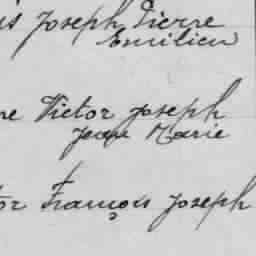 is Joseph Pierre
Emilien
re Victor Joseph
Jean Marie
or François Joseph